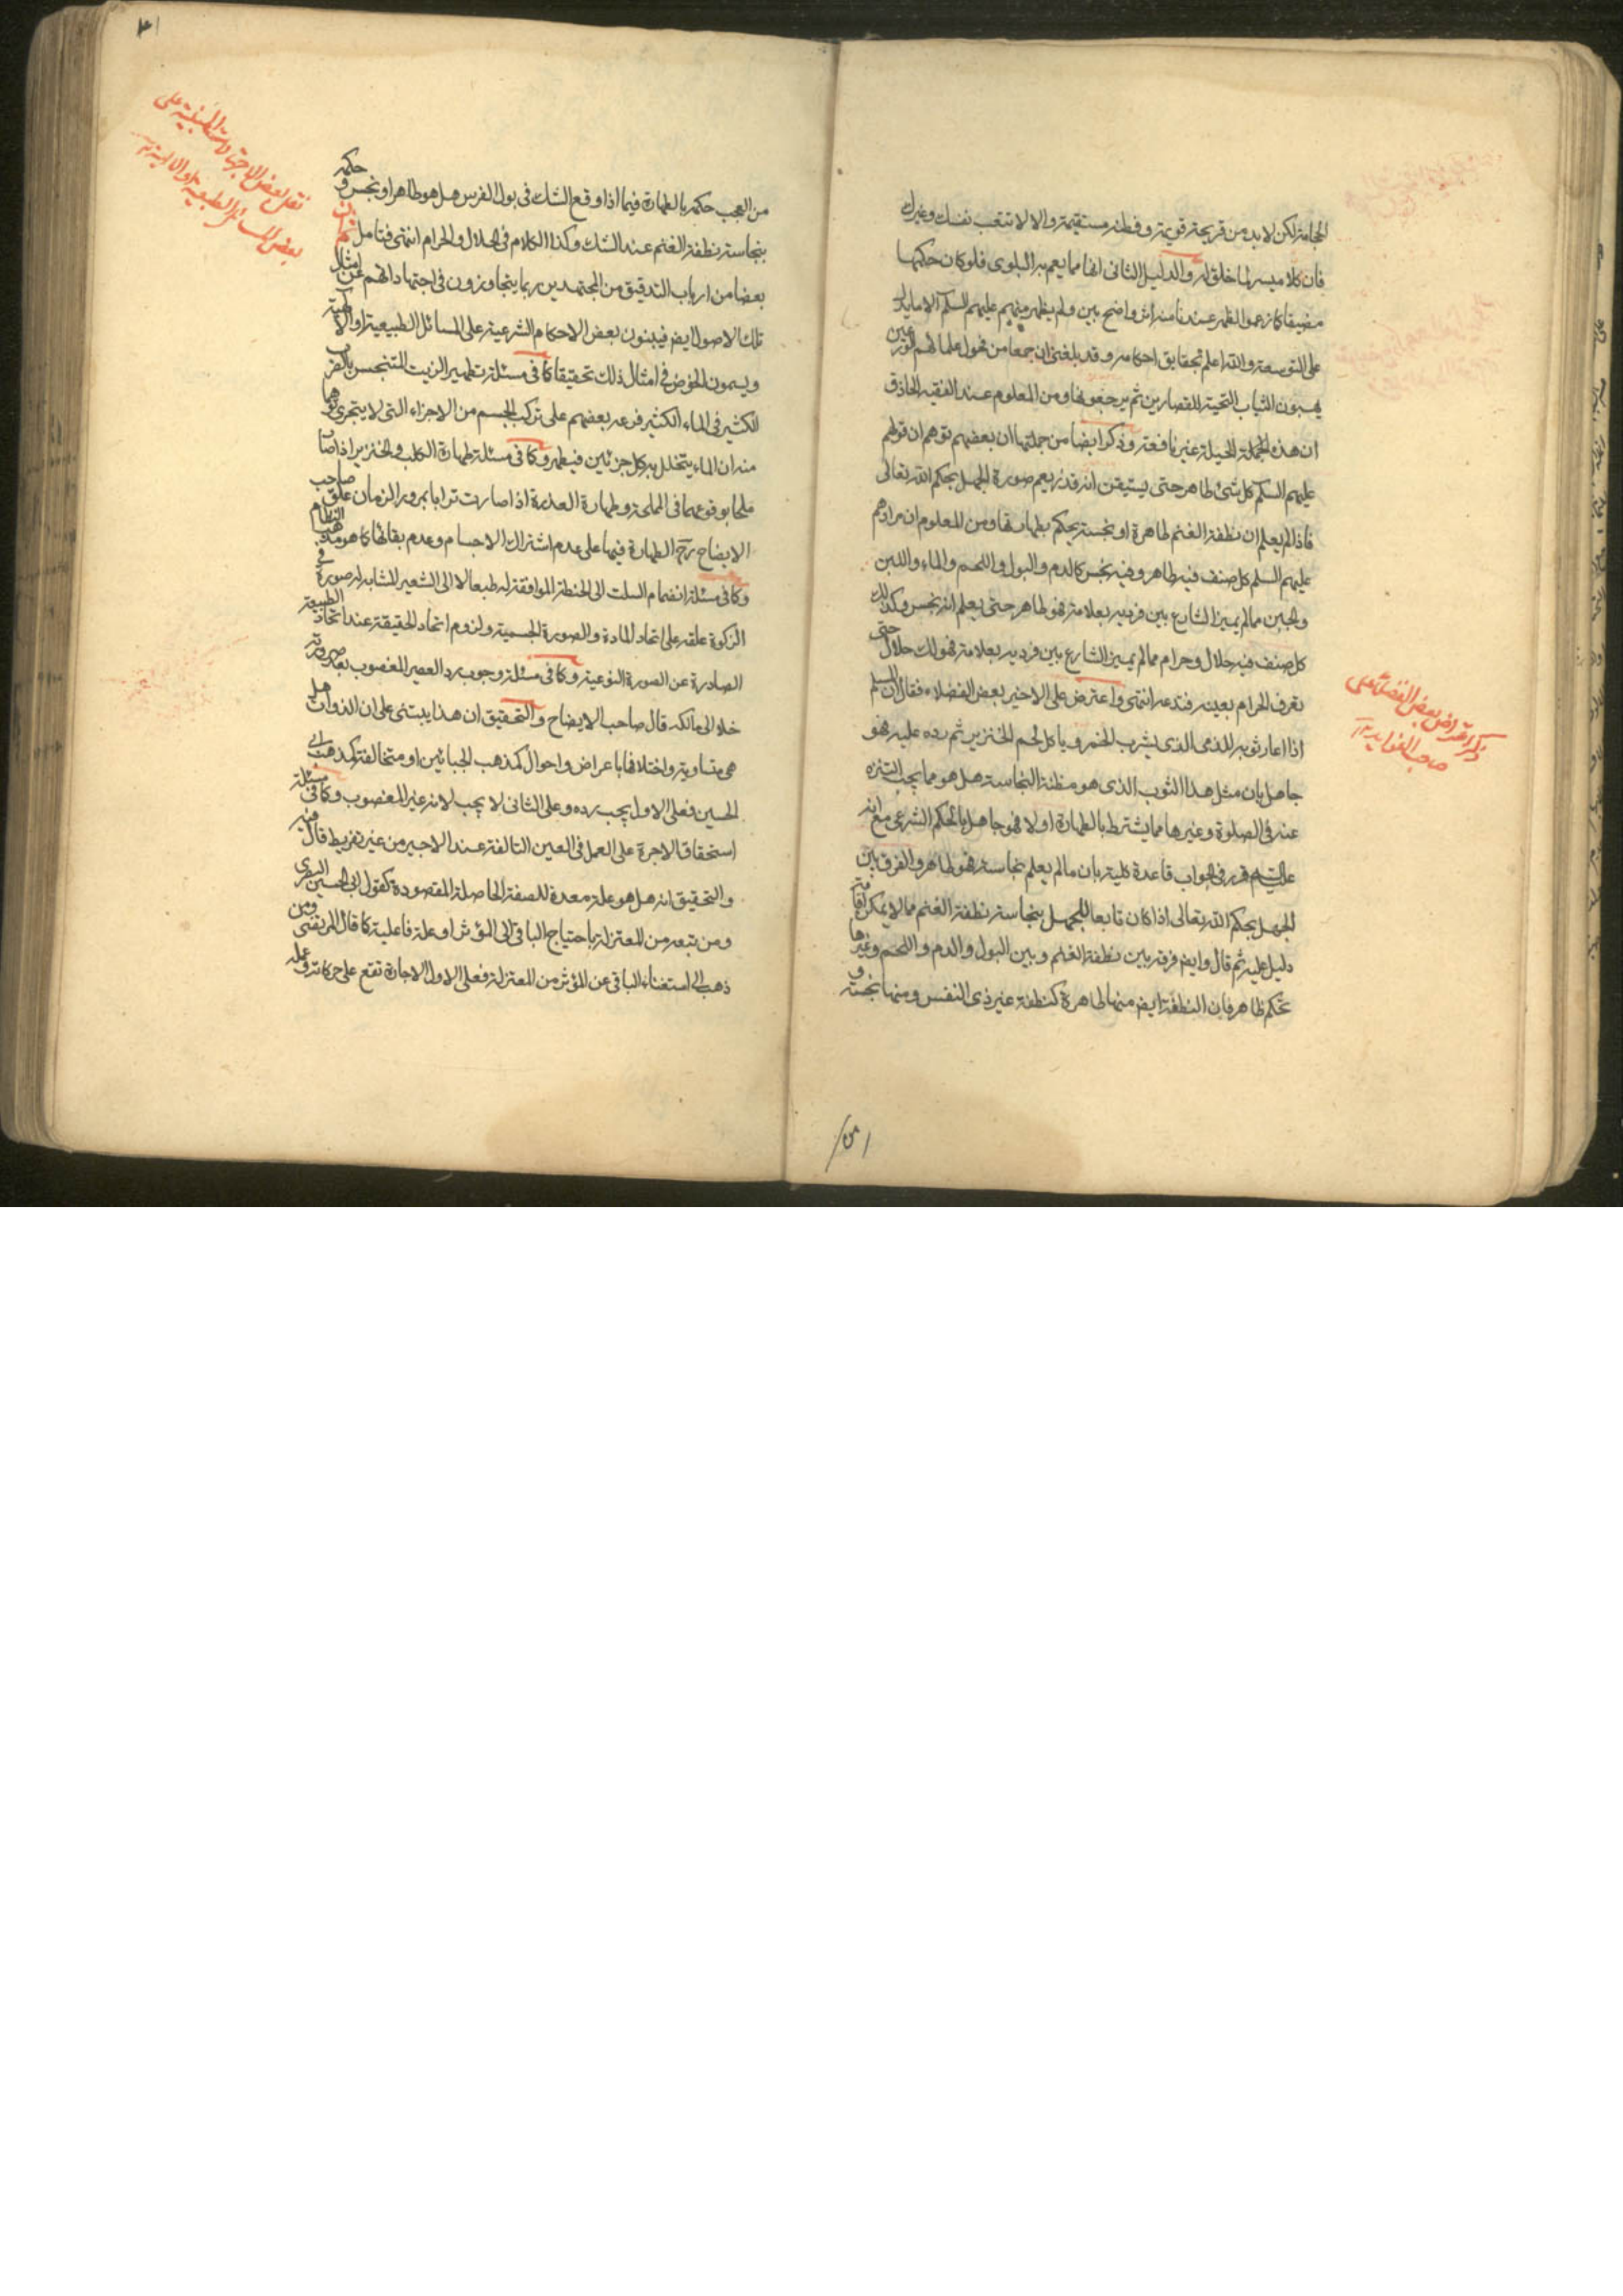 الحجامة لكن لا بد من قريحة قويمة و فطنة مستقيمة و الا لا تتعب نفسك و غيرك
فان كلا ميسر لما خلق له و الدليل الثاني انها مما يعم به البلوى فلو كان حكمها
مضيقا كما زعموا لظهر عندنا منه اثر واضح بين و لم يظهر منهم عليهم السلم الا ما يدل
على التوسعة و الله اعلم بحقايق احكامه و قد بلغني ان جمعا من فحول علمائهم الورعين
يهبون الثياب النجسة للقصارين ثم يرجعونها و من المعلوم عند الفقيه الحاذق
ان هذه الحيلة غير نافعة و ذكر ايضا من جملتها ان بعضهم توهم ان قولهم
عليهم السلم كل شئ طاهر حتى يستيقن انه قذر يعم صورة الجهل بحكم الله تعالى
فاذا لم يعلم ان نطفة الغنم طاهرة او نجسة يحكم بطهارتها و من المعلوم ان مرادهم
عليهم السلم كل صنف فيه طاهر و فيه نجس كالدم و البول و اللحم و الماء و اللبن
و الجبن مما لم يميز الشارع بين فرديه بعلامة فهو طاهر حتى يعلم انه نجس و كذلك
كل صنف فيه حلال و حرام مما لم يميز الشارع بين فرديه بعلامة فهو لك حلال حتى
تعرف الحرام بعينه فتدعه انتهى و اعترض على الاخير بعض الفضلاء فقال ان المسلم
اذا اعار ثوبه للذمي الذي يشرب الخمر و ياكل لحم الخنزير ثم رده عليه فهو
جاهل بان مثل هذا الثوب الذي هو مظنة النجاسة هل هو مما يجب التنزه
عنه في الصلوة و غيرها مما يشترط بالطهارة او لا فهو جاهل بالحكم الشرعي مع انه
عليه السلم قرر في الجواب قاعدة كلية بان ما لم يعلم نجاسته فهو طاهر و الفرق بين
الجهل بحكم الله تعالى اذا كان تابعا للجهل بنجاسة نطفة الغنم مما لا يمكن اقامة
دليل عليه ثم قال و ايضا فرقه بين نطفة الغنم و بين البول و الدم و اللحم و غيرها
تحكم ظاهر فان النطفة ايضا منها طاهرة كنطفة غير ذي النفس و منها نجسة و
ذكر اعتراض بعض الفضلاء على
صاحب الفوايد المدنية
من العجب حكمه بالطهارة فيما اذا وقع الشك في بول الفرس هل هو طاهر او نجس و حكمه
بنجاسة نطفة الغنم عند الشك و كذا الكلام في الحلال و الحرام انتهى فتامل ثم ان
بعضا من ارباب التدقيق من المجتهدين ربما يتجاوزون في اجتهاداتهم عن امثال
تلك الاصول ايضا فيبنون بعض الاحكام الشرعية على المسائل الطبيعية او الالهية
و يسمون الخوض في امثال ذلك تحقيقا كما في مسئلة تطهير الزيت المتنجس بالضرب
الكثير في الماء الكثير فرعه بعضهم على تركب الجسم من الاجزاء التي لا يتجزى توهما
منه ان الماء يتخلل بين كل جزئين فيطهر و كما في مسئلة طهارة الكلب و الخنزير اذا صارا
ملحا بوقوعهما في المملحة و طهارة العذرة اذا صارت ترابا بمرور الزمان علق صاحب
الايضاح رجح الطهارة فيها على عدم اشتراك الاجسام و عدم بقائها كما هو مذهب النظام
و كما في مسئلة انضمام السلت الى الحنطة الموافقة له طبعا لا الى الشعير المشابه له صورة في
الزكوة علقه على اتحاد المادة و الصورة الجسمية و لزوم اتحاد الحقيقة عند اتحاد الطبيعة
الصادرة عن الصورة النوعية و كما في مسئلة وجوب رد العصير المغصوب بعد صيرورته
خلا الى مالكه قال صاحب الايضاح و التحقيق ان هذا يبتنى على ان الذوات هل
هي متساوية و اختلافها باعراض و احوال كمذهب الجبائيين او متخالفة كمذهب ابي
الحسين فعلى الاول يجب رده و على الثاني لا يجب لانه غير المغصوب و كما في مسئلة
استحقاق الاجرة على العمل في العين التالفة عند الاجير من غير تفريط قال فيه
و التحقيق انه هل هو علة معدة للصفة الحاصلة المقصودة كقول ابي الحسين البصري
و من تبعه من المعتزلة باحتياج الباقي الى المؤثر او علة فاعلية كما قال المرتضى و من
ذهب الى استغناء الباقي عن المؤثر من المعتزلة فعلى الاول الاجارة تقع على حركاته و عمله
نقل بعض الاجتهادات المبنية على
بعض المسائل الطبيعية او الالهية